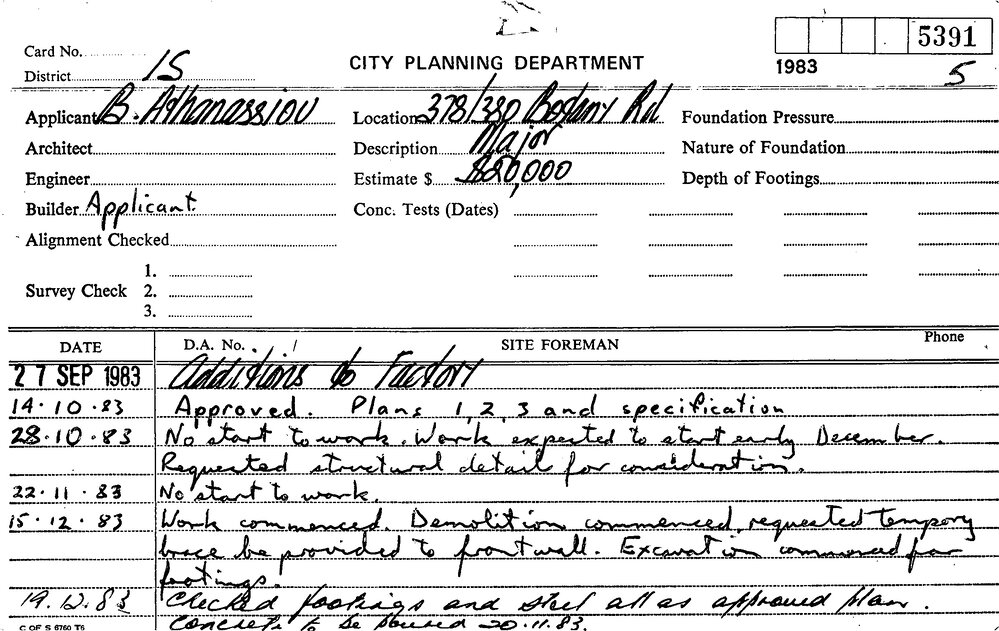 5391
Card No.
District 15
CITY PLANNING DEPARTMENT
1983
5
Applicant B. Athanassiou
Location 378/380 Botany Rd
Foundation Pressure
Architect
Description Major
Nature of Foundation
Engineer
Estimate $ $80,000
Depth of Footings
Builder Applicant
Conc. Tests (Dates)
Alignment Checked
1.
Survey Check 2.
3.
DATE
D.A. No.
SITE FOREMAN
Phone
27 SEP 1983 Additions to Factory
14.10.83 Approved. Plans 1, 2, 3 and specification
28.10.83 No start to work. Work expected to start early December.
Requested structural detail for consideration.
22.11.83 No start to work.
15.12.83 Work commenced. Demolition commenced, requested tempory
brace be provided to front wall. Excavation commenced for
footings.
19.12.83 Checked footings and steel all as approved plan.
Concrete to be poured 20.11.83.
C OF S 6760 T6